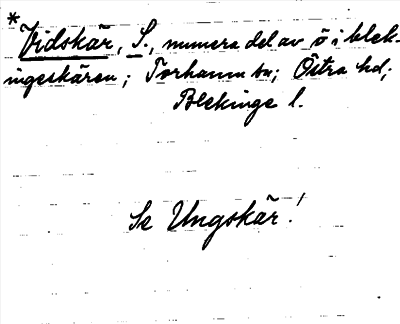 *
Vidskär, S., numera del av ö i Blek-
ingeskären; Torhamn sn; Östra hd;
Blekinge l.
Se Ungskär!